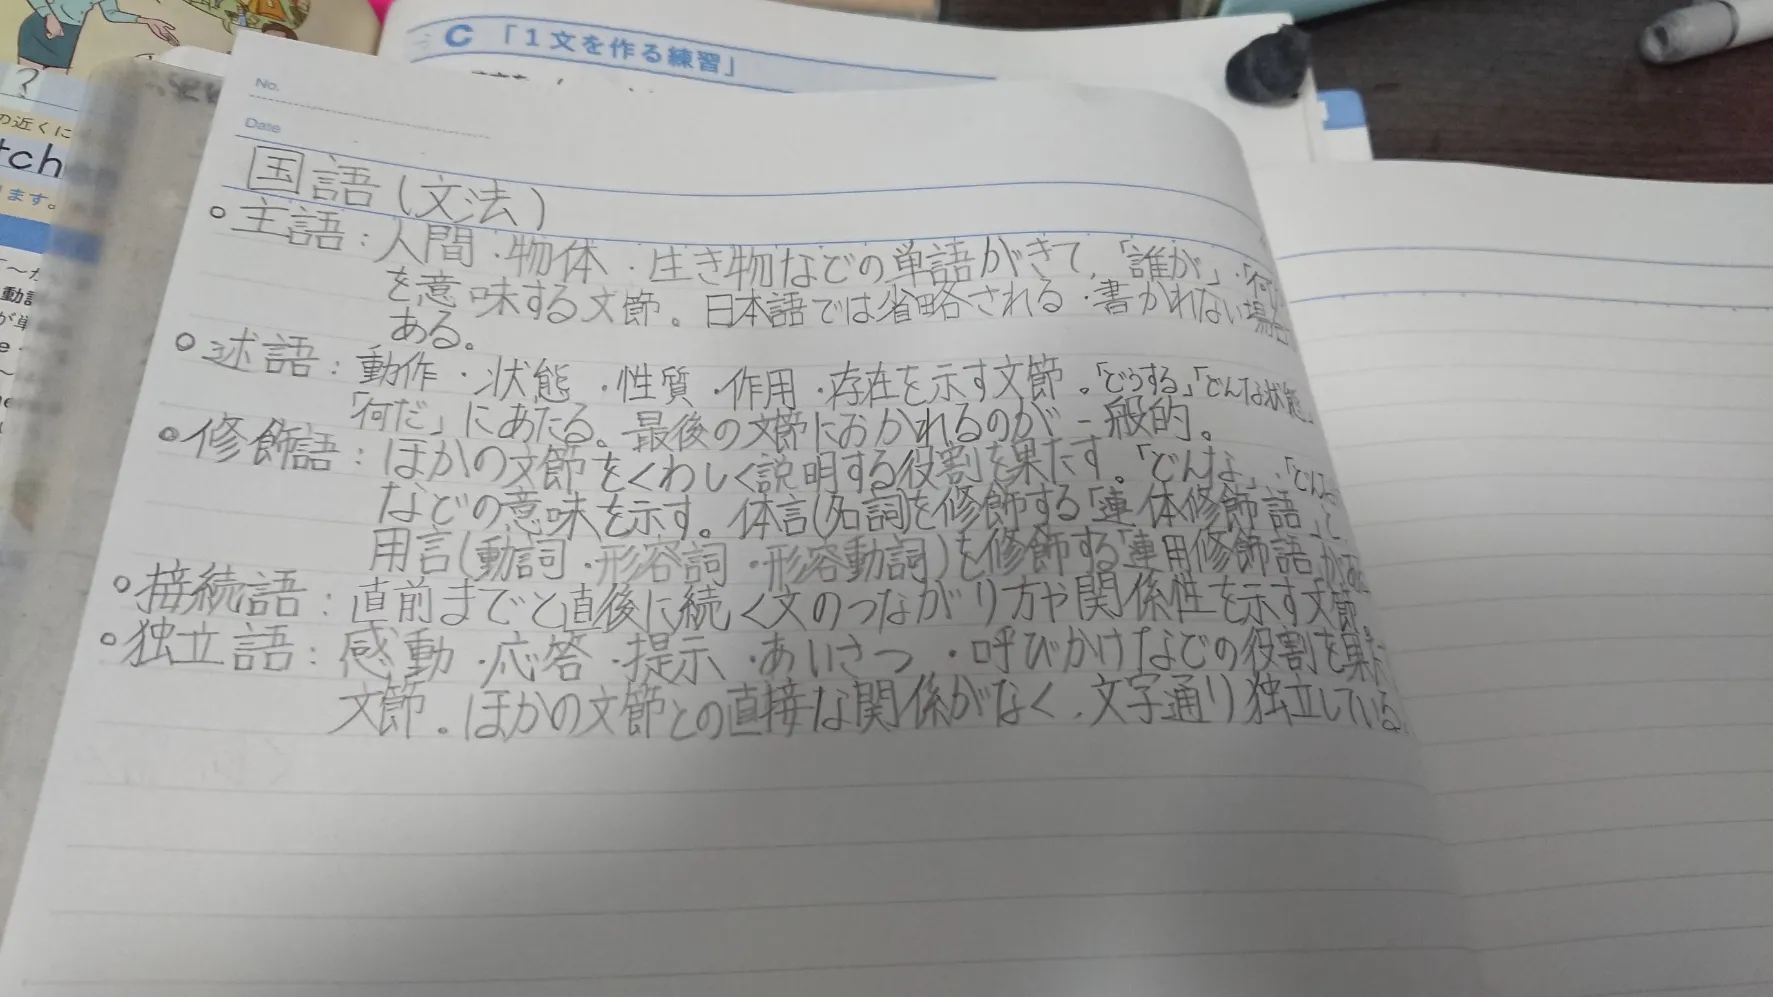 C 「1文を作る練習」
No.
Date
国語(文法)
○主語:人間・物体・生き物などの単語がきて、「誰が」・「何
を意味する文節。日本語では省略される・書かれない場合
ある。
○述語:動作・状態・性質・作用・存在を示す文節。「どうする」「どんな状態」
「何だ」にあたる。最後の文節におかれるのが一般的。
○修飾語:ほかの文節をくわしく説明する役割を果たす。「どんな」・「どんな
などの意味を示す。体言(名詞)を修飾する「連体修飾語」と
用言(動詞・形容詞・形容動詞)を修飾する「連用修飾語」が
○接続語:直前までと直後に続く文のつながり方や関係性を示す文節。
○独立語:感動・応答・提示・あいさつ・呼びかけなどの役割を果た
文節。ほかの文節との直接な関係がなく、文字通り独立している。
?
の近くに
tch
ます。